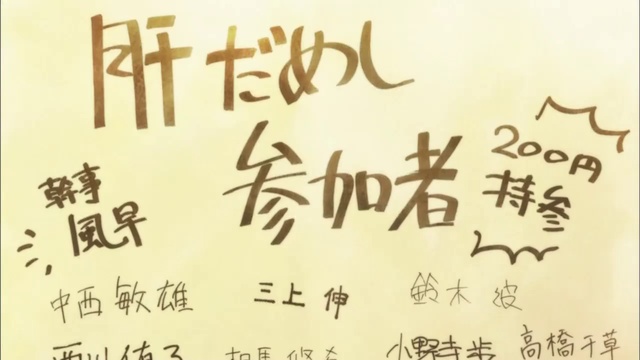 肝だめし
参加者
200円
持参
幹事
風早
中西敏雄 三上伸 鈴木波
小野寺歩 高橋千草